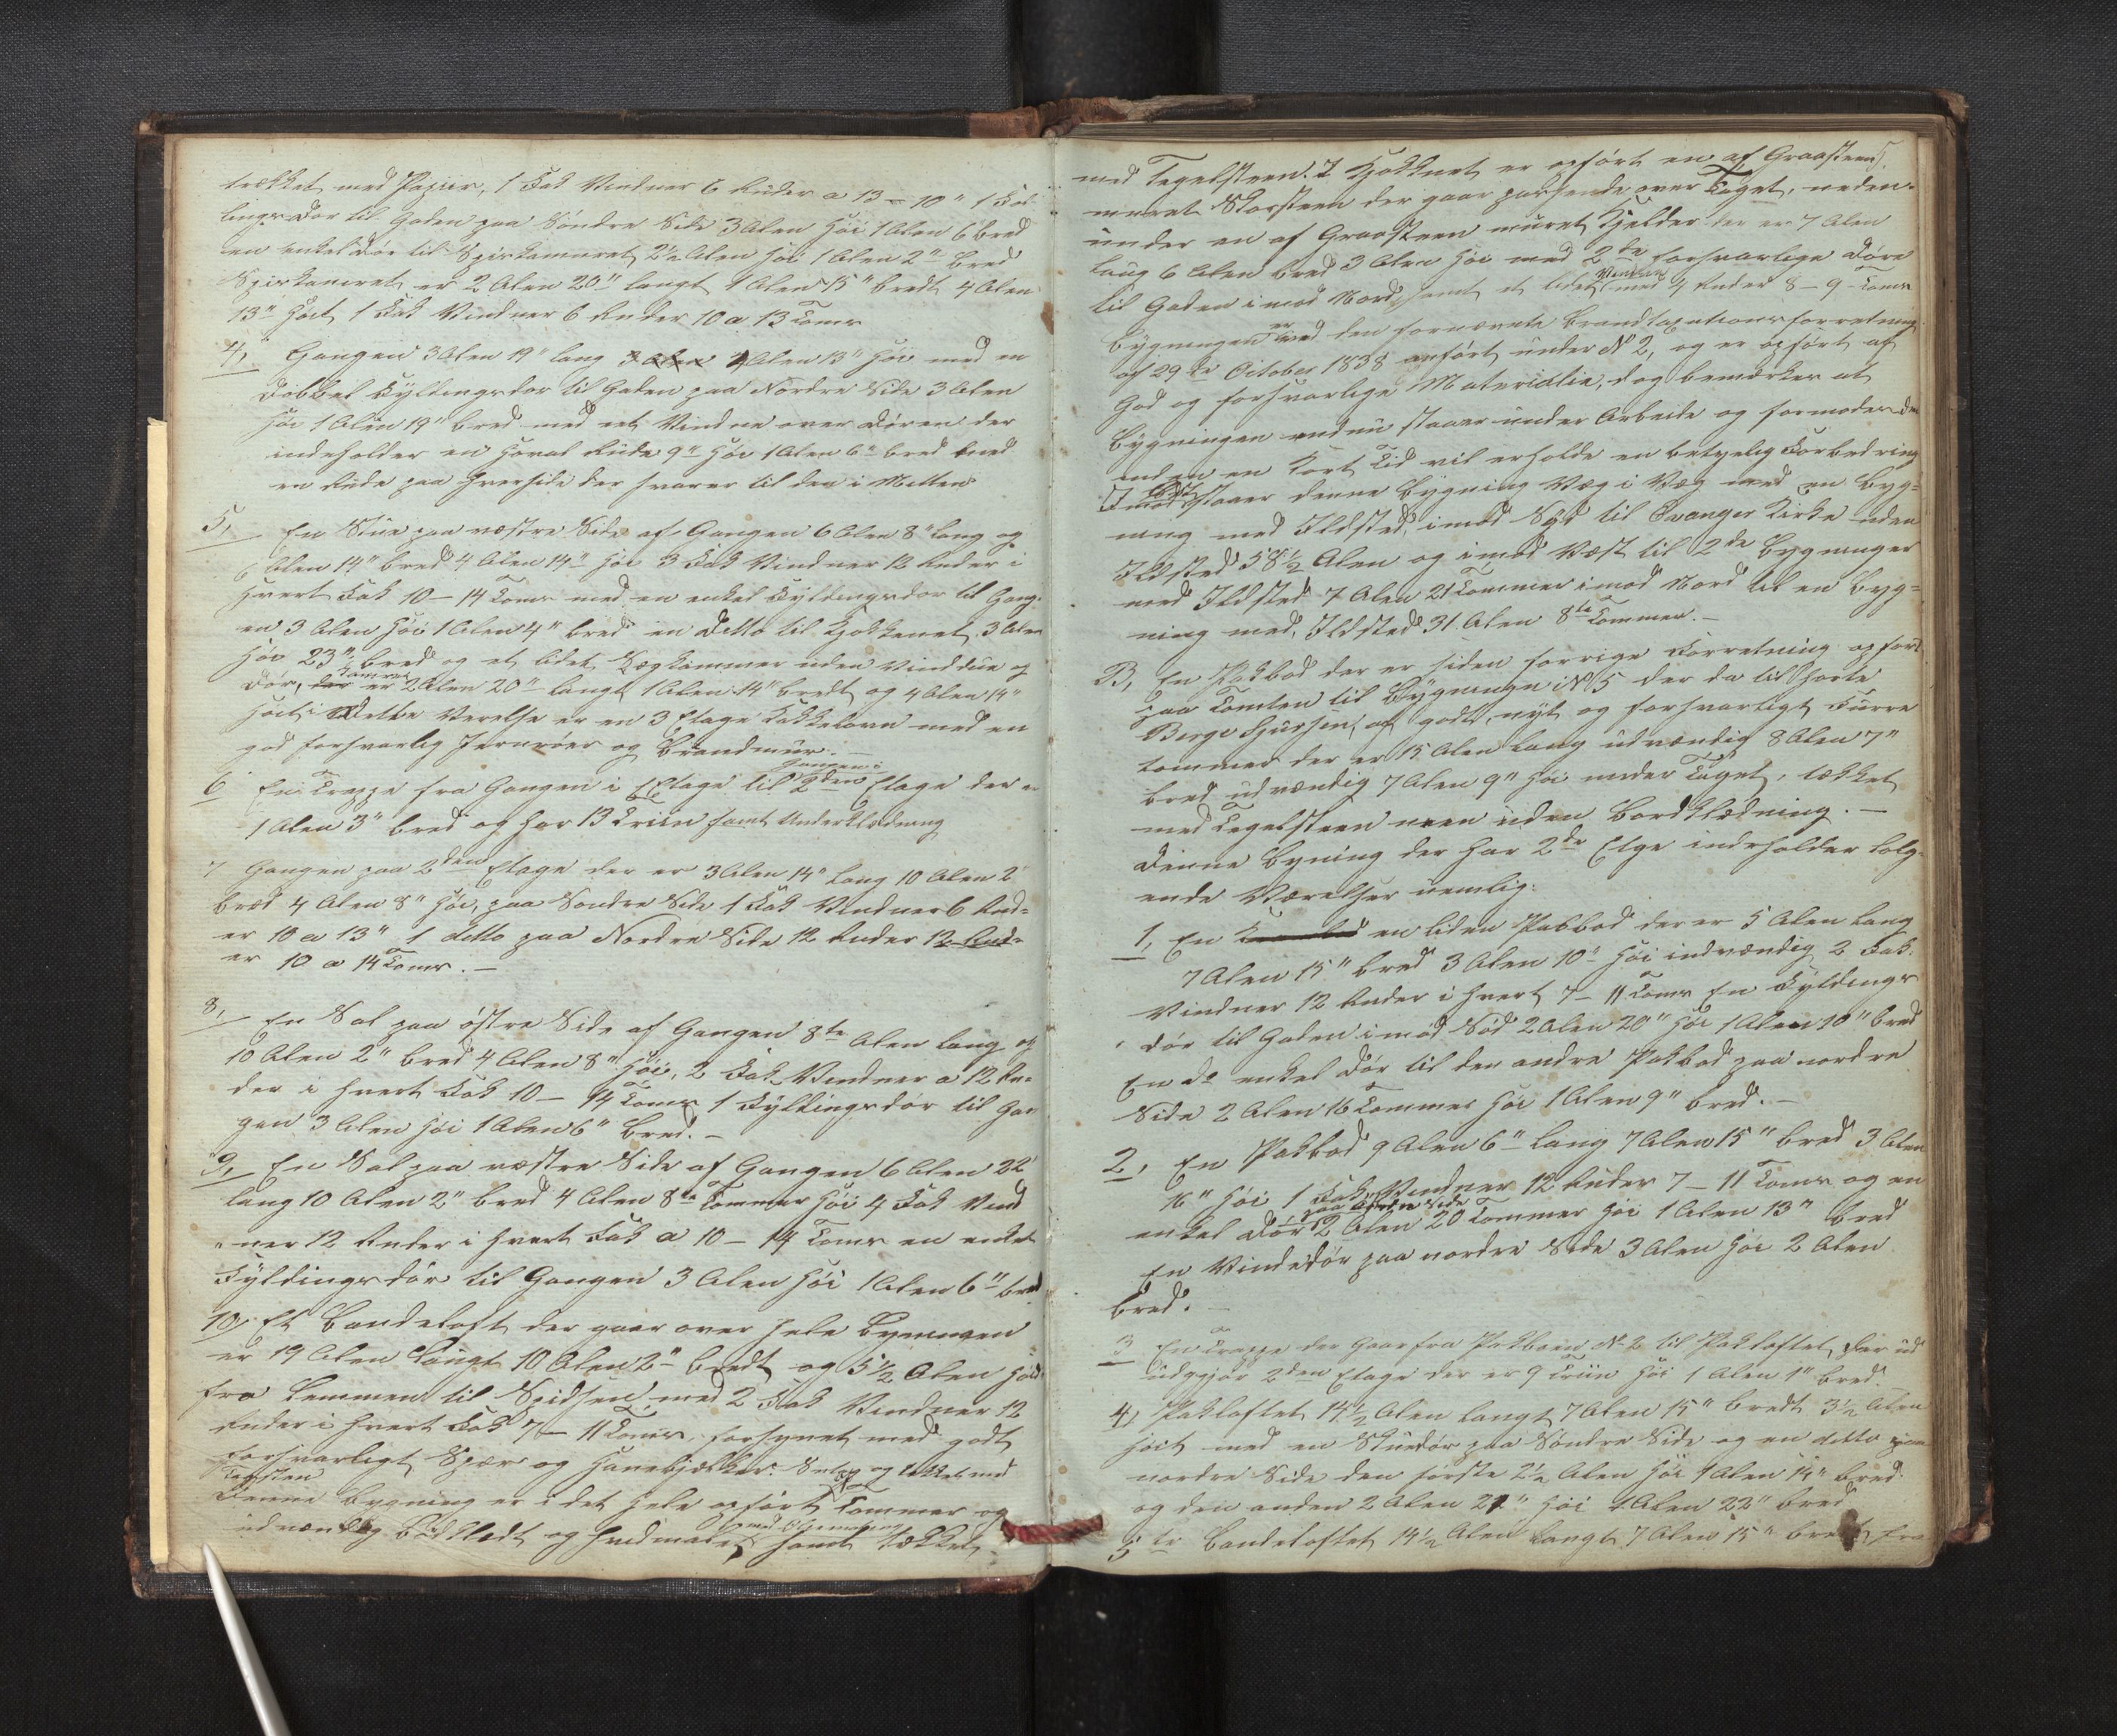 trækket med Papiir, 1 Fak Vinduer 6 Ruder a 13 – 10" 1 Fyl
lings Dør til Gaden paa Søndre Side 3 Alen høi 1 Alen 6" bred
en enkel Dør til Spiskameret 2½ Alen høi 1 Alen 2" bred
Spiskameret er 2 Alen 20" langt 1 Alen 15" bredt 4 Alen
13" høit, 1 Fak Vinduer 6 Ruder 10 a 13 Tom
4, Gangen 3 Alen 19" lang 4 Alen 13" høi med en
dobbel Fyldingsdør til Gaden paa Nordre Side 3 Alen
høi 1 Alen 19" bred med et Vindue over Døren der
indeholder en Rude 9" høi 1 Alen 6" bred med
en Rude paa hver side der svarer til den i Mitten
5, En Stue paa vestre Side af Gangen 6 Alen 8" lang og
6 Alen 14" bred 4 Alen 14" høi 3 Fak Vinduer 12 Ruder i
hvert Fak 10 – 14 Tom med en enkel Fyldingsdør til Gang
en 3 Alen høi 1 Alen 4" bred en Ditto til Kjøkkenet 3 Alen
høi 23" bred og et lidet kammer uden Vindue og
Dør, Kamret er 2 Alen 20" langt 1 Alen 14" bredt og 4 Alen 14"
høit, i dette Verelse er en 3 Etage Kakkelovn med en
god forsvarlig Jernrøer og Brandmuur. –
6 En Trappe fra Gangen i 1 Etage til Gangen i 2den Etage der er
1 Alen 3" bred og har 13 Triin samt Underklædning
7 Gangen paa 2den Etage der er 3 Alen 14" lang 10 Alen 2"
bred 4 Alen 8" høi, paa Søndre Side 1 Fak Vinduer 6 Rud=
er 10 a 13" 1 ditto paa Nordre Side 12 Ruder 12 Rud=
er 10 a 14 Tom. –
8, En Sal paa østre Side af Gangen 8te Alen lang og
10 Alen 2" bred 4 Alen 8" høi, 2 Fak Vinduer a 12 Ru=
der i hvert Fak 10 – 14 Tom 1 Fyldingsdør til Gan
gen 3 Alen høi 1 Alen 6" bred. –
9, En Sal paa vestre Side af Gangen 6 Alen 22"
lang 10 Alen 2" bred 4 Alen 8te Tommer høi 4 Fak Vind
uer 12 Ruder i hvert Fak a 10 – 14 Tom en enkel
Fyldingsdør til Gangen 3 Alen høi 1 Alen 6" bred
10, Et Bandeloft der gaar over hele Bygningen
er 19 Alen langt 10 Alen 2" bredt og 5½ Alen høit
fra Lemmen til Spidsen, med 2 Fak Vinduer 12
Ruder i hvert Fak 7 – 11 Tom, forsynet med godt
forsvarligt Spær og Hanebjælker. og tækket med
Denne Bygning er i det hele opført af Tømmer og
udvendig Bordklædt og samt tækket
med Tegelsteen. I Kjøkkenet er opført en af Graasteen
muret Skorsteen der gaar passende over Taget, neden-
under en af Graasteen muret Kjelder der er 7 Alen
lang 6 Alen bred 3 Alen høi med 2de forsvarlige Døre
til Gaden imod Nord samt et lidet Vindue med 4 Ruder 8 – 9 Tom
Bygningen er ved den fornævnte Brandtaxationsforretning
af 29de October 1838 anført under No 2, og er opført af
God og forsvarlige Materialie, dog bemærkes at
Bygningen endnu staaer under Arbeide og formodes den
inden en kort Tid vil erholde en betydelig Forbedring
Imod Øst staaer denne Bygning Væg i Væg med en Byg=
ning med Ildsted, imod Syd til Evanger Kirke uden
Ildsted 58½ Alen og imod Vest til 2de Bygninger
med Ildsted 7 Alen 21 Tommer imod Nord til en Byg=
ning med Ildsted 31 Alen 8te Tommer. –
B, En Pakbod der er siden forrige Forretning opført
paa Tomten til Bygningen No 5 der da tilhørte
Berge af godt, nyt og forsvarligt Furre
tømmer der er 15 Alen lang udvendig 8 Alen 7"
bred udvendig 7 Alen 9" høi under Taget, tækket
med Tegelsteen men uden Bordklædning. –
Denne Bygning der har 2de Etage indeholder følg-
ende Værelser nemlig:
1, En en liden Pakbod der er 5 Alen lang
7 Alen 15" bred 3 Alen 10" høi indvendig 2 Fak
Vinduer 12 Ruder i hvert 7 – 11 Tom En Fyldings
dør til Gaden imod Sød 2 Alen 20" høi 1 Alen 10" bred
En do enkel Dør til den andre Pakbod paa nordre
Side 2 Alen 16 Tommer høi 1 Alen 9" bred. –
2, En Pakbod 9 Alen 6" lang 7 Alen 15" bred 3 Alen
16" høi 1 Fak Vinduer 12 Ruder 7 – 11 Tom og en
enkel Dør paa Side 2 Alen 20 Tommer høi 1 Alen 13" bred
En Vindedør paa nordre Side 3 Alen høi 2 Alen
bred. –
3 En Trappe der Gaar fra Pakboen No 2 til Pakloftet, der ud
udgjør 2den Etage der er 9 Triin høi 1 Alen 1" bred.
4, Pakloftet 14½ Alen langt 7 Alen 15" bredt 3½ Alen
høit med en dør paa Søndre Side og en ditto paa
nordre Side den første 2½ Alen høi 1 Alen 14" bred
og den anden 2 Alen 21" høi 1 Alen 22" bred
5te Bandeloftet 14½ Alen langt 7 Alen 15" bredt fra